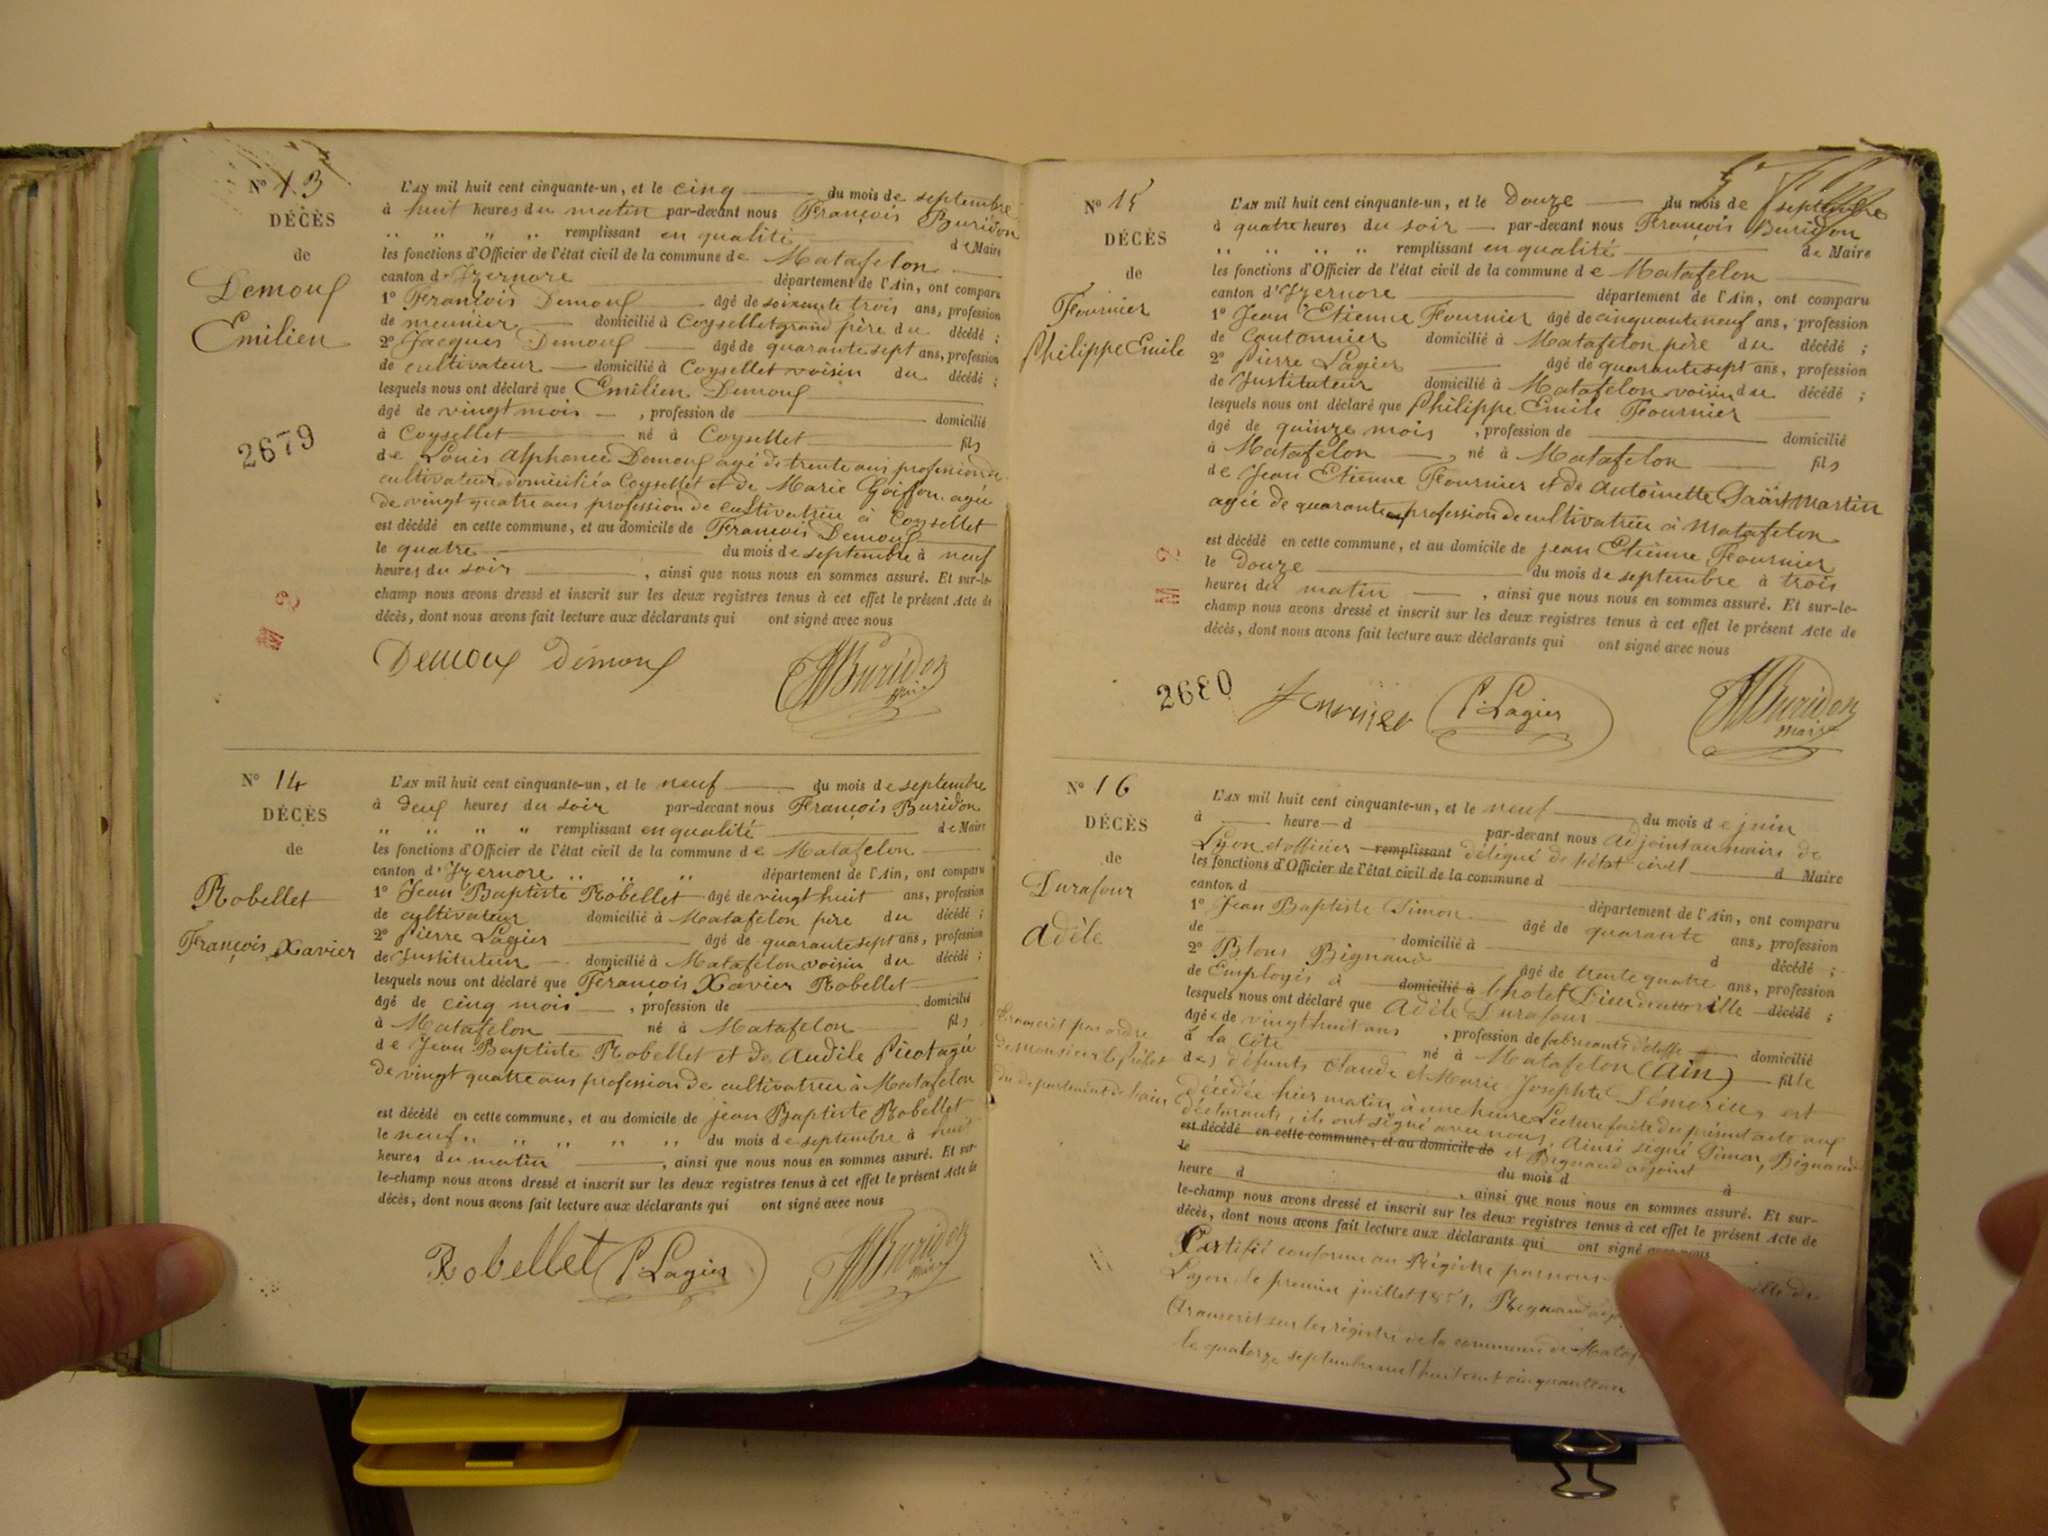 N° 13
DÉCÈS
de
Demouf
Emilien
2679
L'AN mil huit cent cinquante-un, et le cinq du mois de septembre
à huit heures du matin par-devant nous François Buridon
" " " " remplissant en qualité de Maire
les fonctions d'Officier de l'état civil de la commune de Matafelon
canton d'Izernore département de l'Ain, ont comparu
1° François Demouf âgé de soixante trois ans, profession
de meunier domicilié à Coysellet grand père du décédé ;
2° Jacques Demouf âgé de quarante sept ans, profession
de cultivateur domicilié à Coysellet voisin du décédé ;
lesquels nous ont déclaré que Emilien Demouf
âgé de vingt mois , profession de domicilié
à Coysellet né à Coysellet fils
de Louis Alphonce Demouf agé de trente ans profession de
cultivateur domicilié à Coysellet et de Marie Goiffon agée
de vingt quatre ans profession de cultivatrice à Coysellet
est décédé en cette commune, et au domicile de François Demouf
le quatre du mois de septembre à neuf
heures du soir , ainsi que nous nous en sommes assuré. Et sur-le-
champ nous avons dressé et inscrit sur les deux registres tenus à cet effet le présent Acte de
décès, dont nous avons fait lecture aux déclarants qui ont signé avec nous
Demouf Demouf Buridon
Maire
N° 14
DÉCÈS
de
Robellet
François Xavier
L'AN mil huit cent cinquante-un, et le neuf du mois de septembre
à deux heures du soir par-devant nous François Buridon
" " " " remplissant en qualité de Maire
les fonctions d'Officier de l'état civil de la commune de Matafelon
canton d'Izernore " " " département de l'Ain, ont comparu
1° Jean Baptiste Robellet âgé de vingt huit ans, profession
de cultivateur domicilié à Matafelon père du décédé ;
2° Pierre Lagier âgé de quarante sept ans, profession
de Instituteur domicilié à Matafelon voisin du décédé ;
lesquels nous ont déclaré que François Xavier Robellet
âgé de cinq mois , profession de domicilié
à Matafelon né à Matafelon fils
de Jean Baptiste Robellet et de Audile Picot agée
de vingt quatre ans profession de cultivatrice à Matafelon
est décédé en cette commune, et au domicile de jean Baptiste Robellet
le neuf " " " " " du mois de septembre à huit
heures du matin , ainsi que nous nous en sommes assuré. Et sur-
le-champ nous avons dressé et inscrit sur les deux registres tenus à cet effet le présent Acte de
décès, dont nous avons fait lecture aux déclarants qui ont signé avec nous
Robellet P. Lagier Buridon
Maire
N° 15
DÉCÈS
de
Fournier
Philippe Emile
2680
L'AN mil huit cent cinquante-un, et le douze du mois de septembre
à quatre heures du soir par-devant nous François Buridon
" " " " remplissant en qualité de Maire
les fonctions d'Officier de l'état civil de la commune de Matafelon
canton d'Izernore département de l'Ain, ont comparu
1° Jean Etienne Fournier âgé de cinquante neuf ans, profession
de Cantonnier domicilié à Matafelon père du décédé ;
2° Pierre Lagier âgé de quarante sept ans, profession
de Instituteur domicilié à Matafelon voisin du décédé ;
lesquels nous ont déclaré que Philippe Emile Fournier
âgé de quinze mois , profession de domicilié
à Matafelon né à Matafelon fils
de Jean Etienne Fournier et de Antoinette Saint Martin
agée de quarante profession de cultivatrice à Matafelon
est décédé en cette commune, et au domicile de jean Etienne Fournier
le douze du mois de septembre à trois
heures du matin , ainsi que nous nous en sommes assuré. Et sur-le-
champ nous avons dressé et inscrit sur les deux registres tenus à cet effet le présent Acte de
décès, dont nous avons fait lecture aux déclarants qui ont signé avec nous
Fournier P. Lagier Buridon
Maire
N° 16
DÉCÈS
de
Durafour
Adèle
Transcrit par ordre
de Monsieur le préfet
du département de l'ain
L'AN mil huit cent cinquante-un, et le neuf du mois de juin
à heure d par-devant nous adjoint au maire de
Lyon et officier remplissant délégué de l'état civil d Maire
les fonctions d'Officier de l'état civil de la commune d
canton d département de l'Ain, ont comparu
1° Jean Baptiste Simon âgé de quarante ans, profession
de domicilié à d décédé ;
2° Blons Bignand âgé de trente quatre ans, profession
de Employés à domicilié à l'hotel Dieu de cette ville décédé ;
lesquels nous ont déclaré que Adèle Durafour
âgée de vingt huit ans , profession de fabricante d'étoffe domicilié
à la Côte né à Matafelon (Ain) fille
des défunts Claude et Marie Josephte est
décédée hier matin à une heure Lecture faite du présent acte aux
déclarants, ils ont signé avec nous, Ainsi signé Simon, Bignand
est décédé en cette commune, et au domicile de et Bignand adjoint
le du mois d à
heure d , ainsi que nous nous en sommes assuré. Et sur-
le-champ nous avons dressé et inscrit sur les deux registres tenus à cet effet le présent Acte de
décès, dont nous avons fait lecture aux déclarants qui ont signé avec nous
Certifié conforme au Régistre par nous ville de
Lyon le premier juillet 1851,
Transcrit sur les régistre de la commune de
le quatorze septembre mil huit cent cinquante un